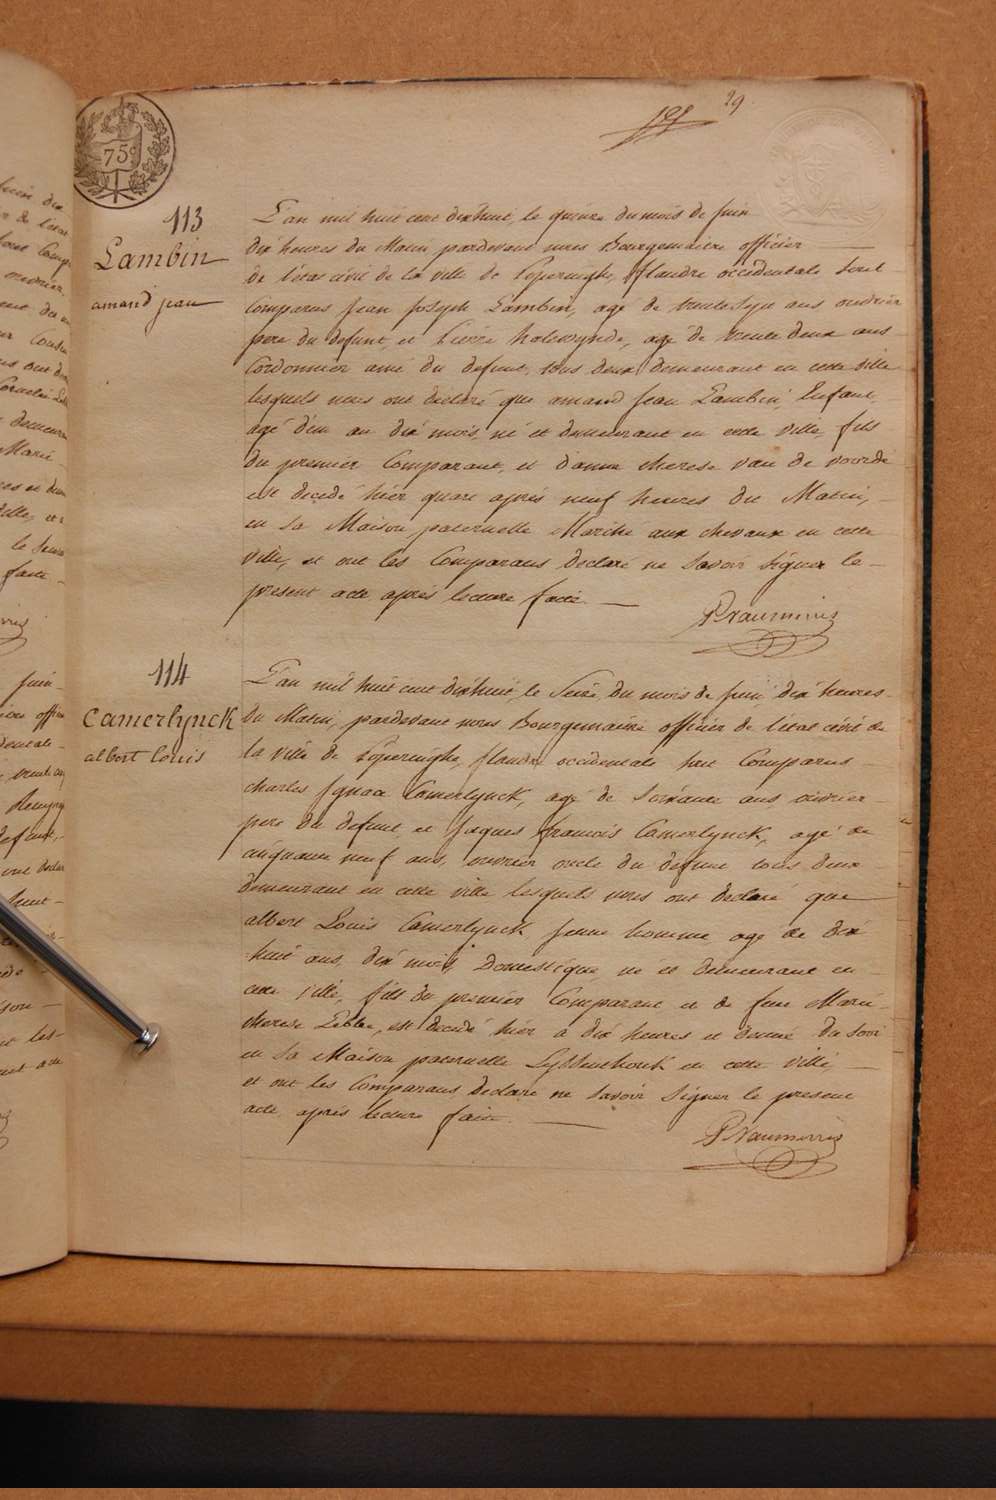 29
75c
113
Lambin
amand jean
L'an mil huit cent dixhuit, le quinze du mois de Juin
dix heures du Matin, pardevant nous Bourgemaitre officier
de l'etat civil de la ville de Poperinghe, flandre occidentale sont
Comparus Jean Joseph Lambin, agé de trente ans ouvrier
pere du defunt, et Pierre agé de trente deux ans
Cordonnier ami du defunt, tous deux demeurant en cette ville
lesquels nous ont declaré que amand Jean Lambin, Enfant,
agé d'un an dix mois, né et demeurant en cette ville, fils
du premier Comparant, et d'anne therese van de voorde
est decedé hier quart après neuf heures du Matin,
en sa Maison paternelle Marche aux chevaux en cette
ville, et ont les Comparans declaré ne savoir signer le
present acte après lecture faite.
114
Camerlynck
albert louis
L'an mil huit cent dixhuit, le Seize du mois de Juin dix heures
du Matin, pardevant nous Bourgemaitre officier de l'etat civil de
la ville de Poperinghe, flandre occidentale sont Comparus
charles Ignace Camerlynck, agé de soixante ans ouvrier
pere du defunt, et Jaques francois Camerlynck, agé de
cinquante neuf ans, ouvrier oncle du defunt tous deux
demeurant en cette ville lesquels nous ont declaré que
albert Louis Camerlynck jeune homme agé de dix
huit ans, dix mois, Domestique, né et demeurant en
cette ville, fils du premier Comparant et de feue Marie
therese est decedé hier a dix heures et demie du soir
en sa Maison paternelle en cette ville,
et ont les Comparans declaré ne savoir signer le present
acte après lecture faite.